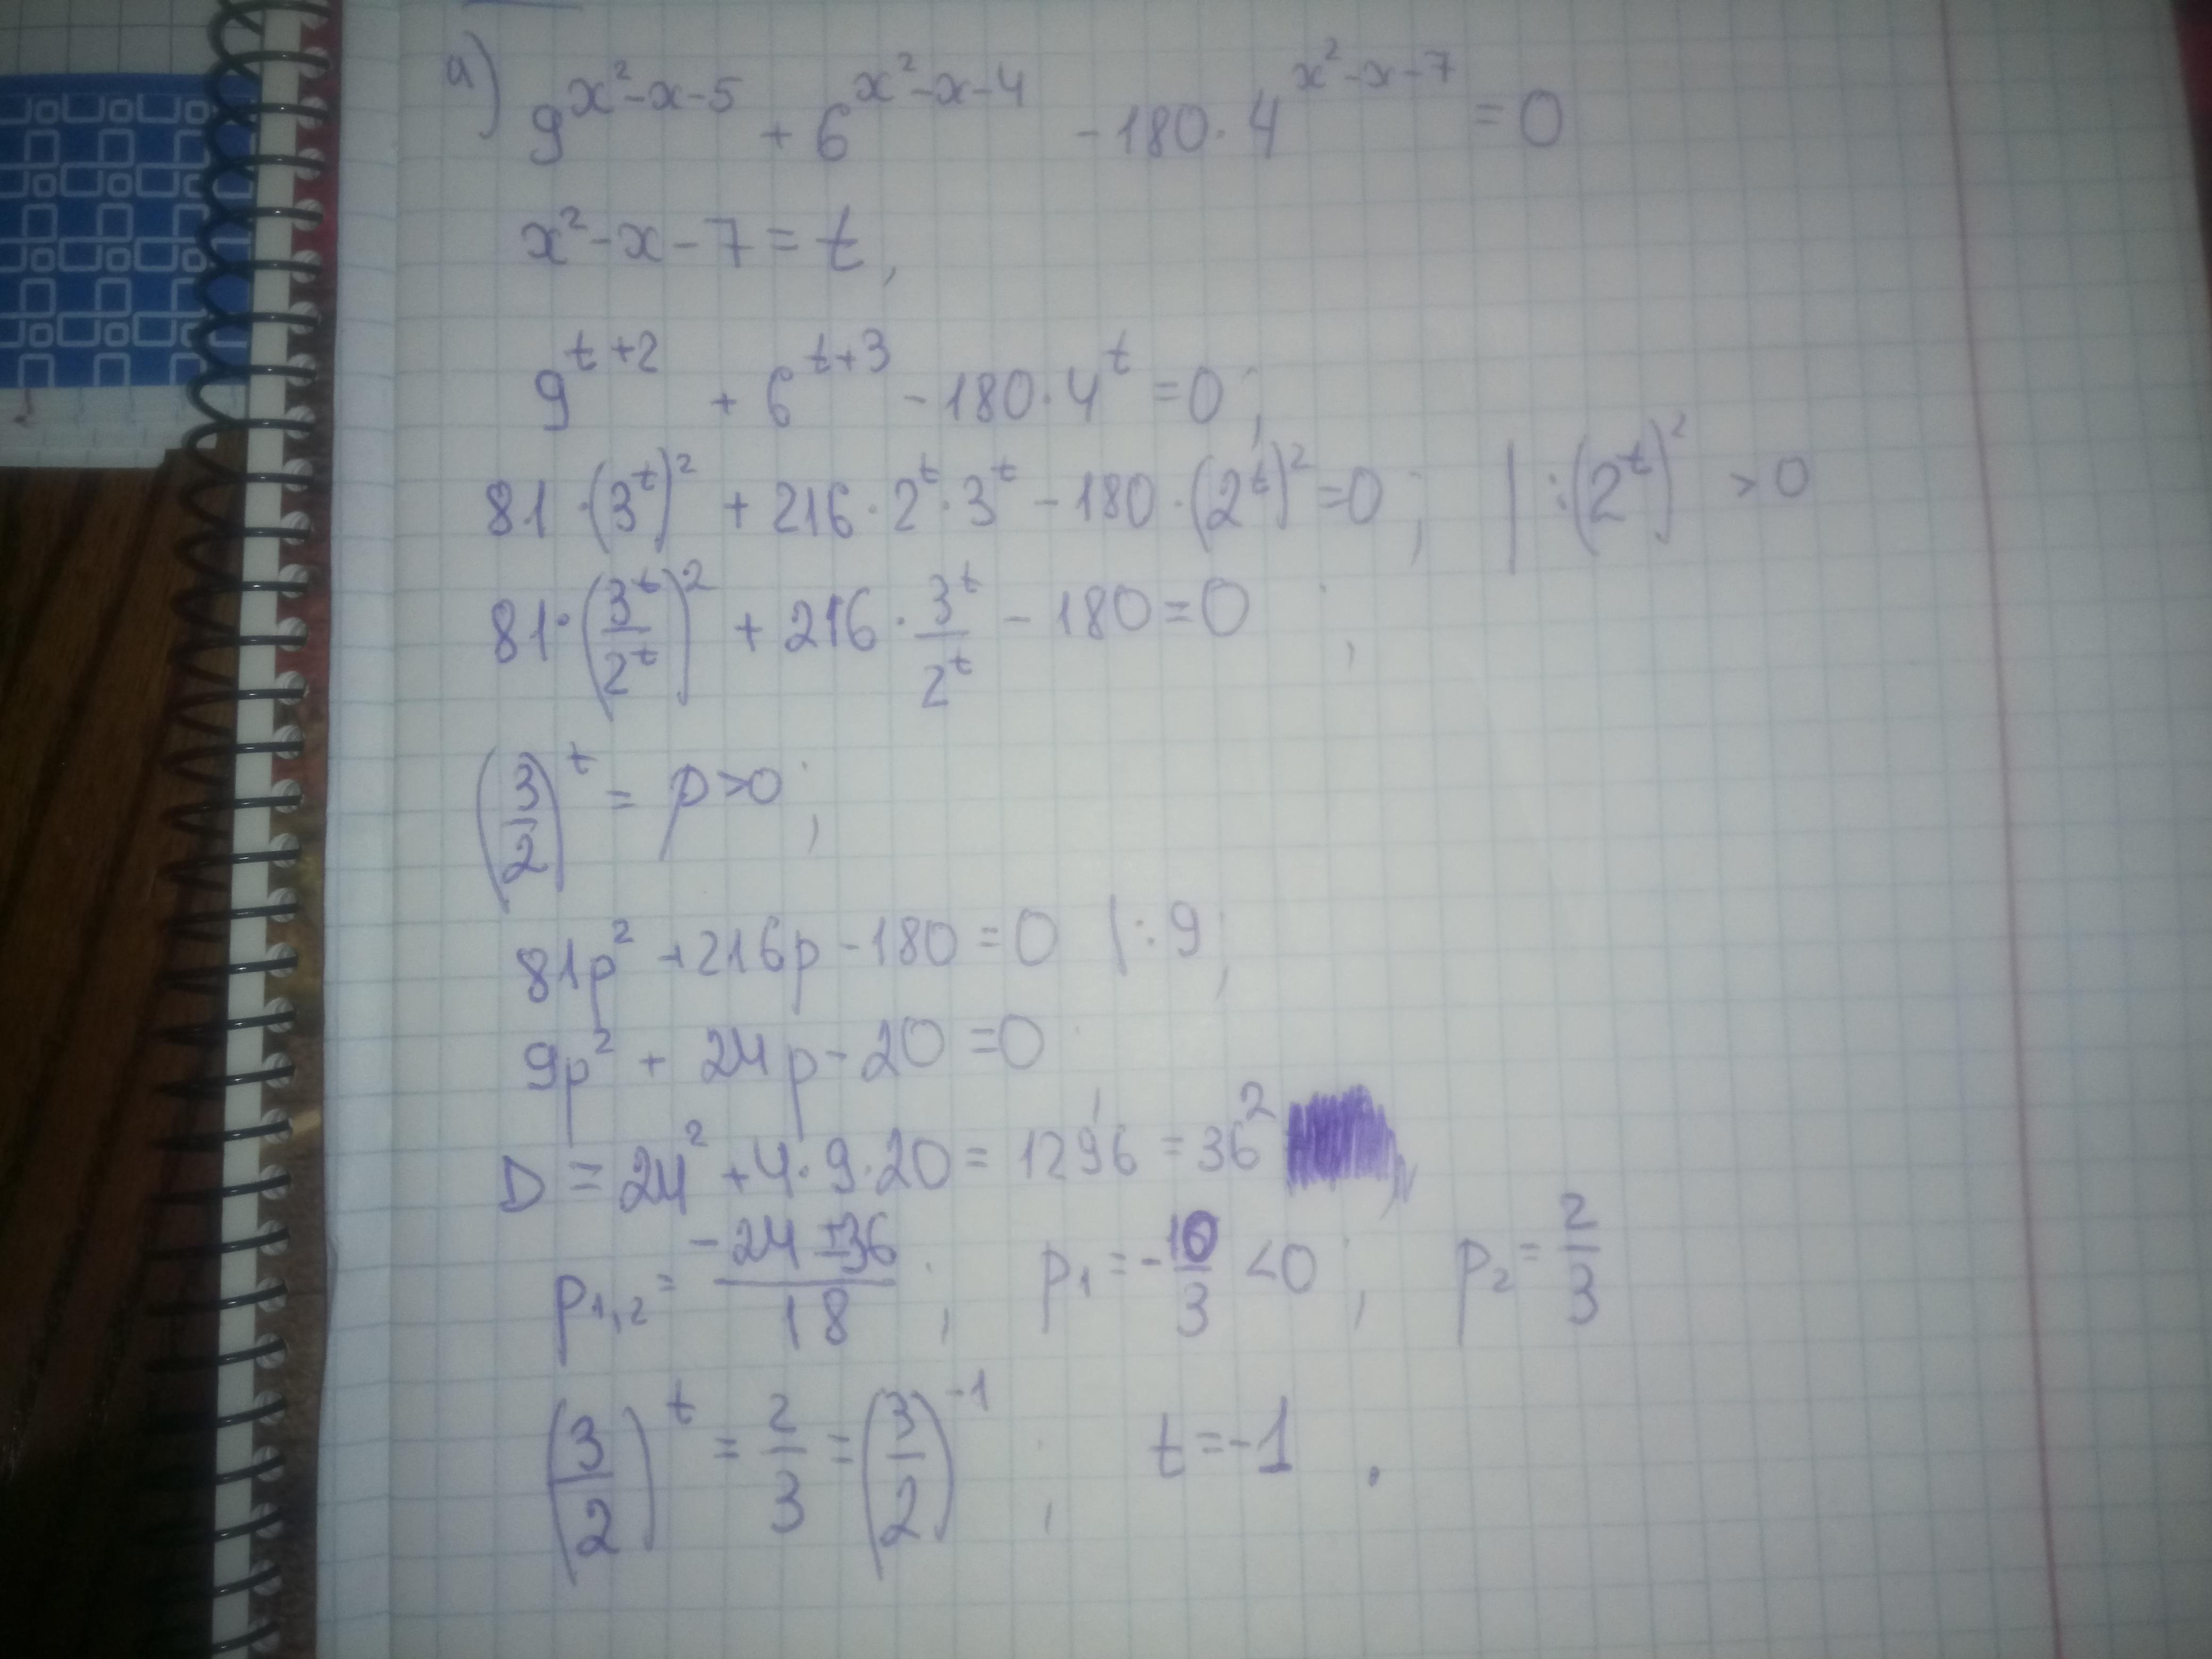 a) 9^(x²-x-5) + 6^(x²-x-4) - 180·4^(x²-x-7) = 0
x²-x-7 = t,
9^(t+2) + 6^(t+3) - 180·4^t = 0;
81·(3^t)² + 216·2^t·3^t - 180·(2^t)² = 0; | :(2^t)² > 0
81·(3^t/2^t)² + 216·3^t/2^t - 180 = 0;
(3/2)^t = p > 0;
81p² + 216p - 180 = 0 |:9;
9p² + 24p - 20 = 0;
D = 24² + 4·9·20 = 1296 = 36²;
p1,2 = (-24 ± 36)/18; p1 = -10/3 < 0; p2 = 2/3
(3/2)^t = 2/3 = (3/2)^(-1); t = -1.